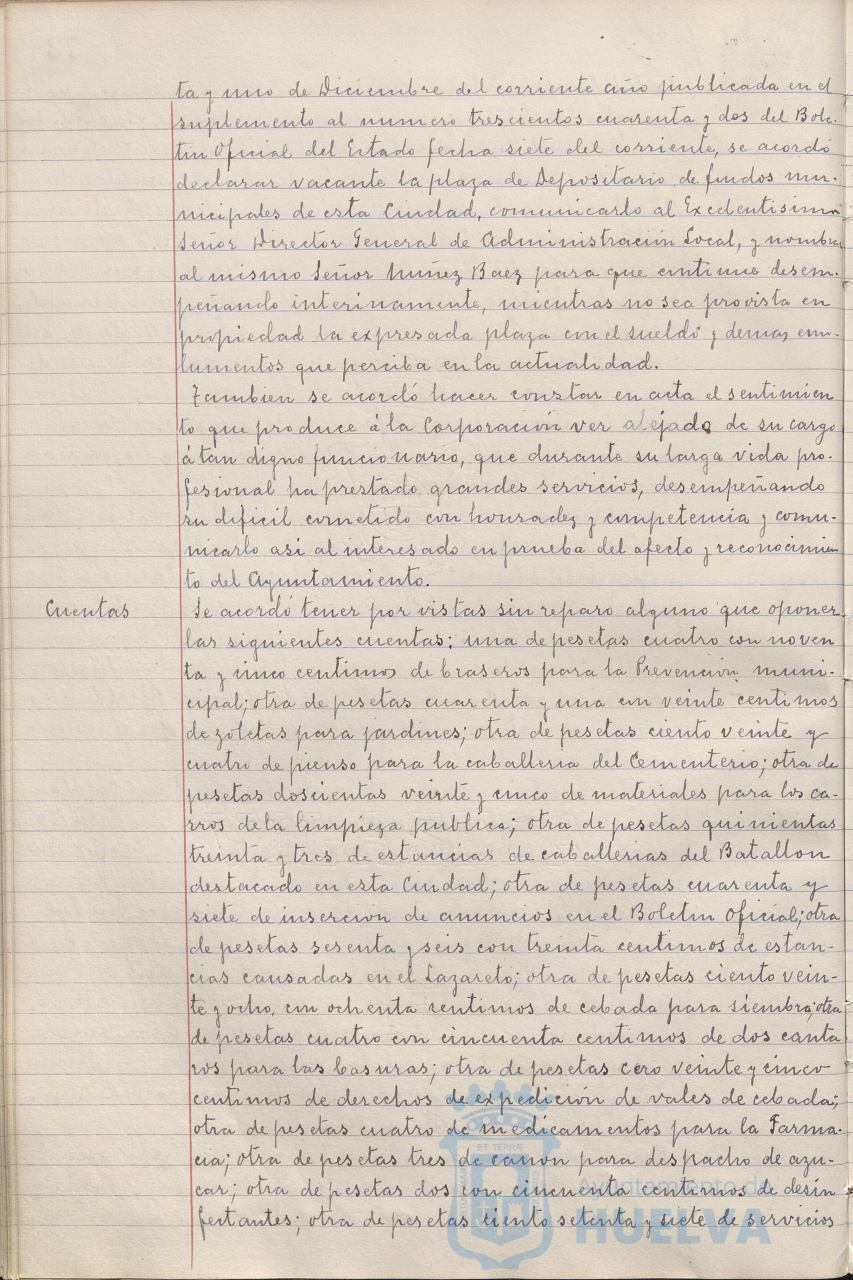 ta y uno de Diciembre del corriente año publicada en el
suplemento al numero trescientos cuarenta y dos del Bole-
tin Oficial del Estado fecha siete del corriente, se acordó
declarar vacante la plaza de Depositario de fondos mu-
nicipales de esta Ciudad, comunicarlo al Excelentisimo
Señor Director General de Administración Local, y nombrar
al mismo Señor Nuñez Baez para que continue desem-
peñando interinamente, mientras no sea provista en
propiedad la expresada plaza con el sueldo y demas emo-
lumentos que perciba en la actualidad.
Tambien se acordó hacer constar en acta el sentimien
to que produce á la Corporación ver alejado de su cargo
á tan digno funcionario, que durante su larga vida pro-
fesional ha prestado grandes servicios, desempeñando
su dificil cometido con honradez y competencia y comu-
nicarlo asi al interesado en prueba del afecto y reconocimien
to del Ayuntamiento.
Cuentas
Se acordó tener por vistas sin reparo alguno que oponer
las siguientes cuentas: una de pesetas cuatro con noven
ta y cinco centimos de braseros para la Prevención muni-
cipal; otra de pesetas cuarenta y una con veinte centimos
de zoletas para jardines; otra de pesetas ciento veinte y
cuatro de pienso para la caballeria del Cementerio; otra de
pesetas doscientas veinte y cinco de materiales para los ca-
rros de la limpieza publica; otra de pesetas quinientas
treinta y tres de estancias de caballerias del Batallon
destacado en esta Ciudad; otra de pesetas cuarenta y
siete de insercion de anuncios en el Boletin Oficial; otra
de pesetas sesenta y seis con treinta centimos de estan-
cias causadas en el Lazareto; otra de pesetas ciento vein-
te y ocho, con ochenta centimos de cebada para siembra; otra
de pesetas cuatro con cincuenta centimos de dos canta
ros para las basuras; otra de pesetas cero veinte y cinco
centimos de derechos de expedición de vales de cebada;
otra de pesetas cuatro de medicamentos para la Farma-
cia; otra de pesetas tres de canon para despacho de azu-
car; otra de pesetas dos con cincuenta centimos de desin
fectantes; otra de pesetas ciento setenta y siete de servicios
ET TERRÆ
Ayuntamiento de
HUELVA